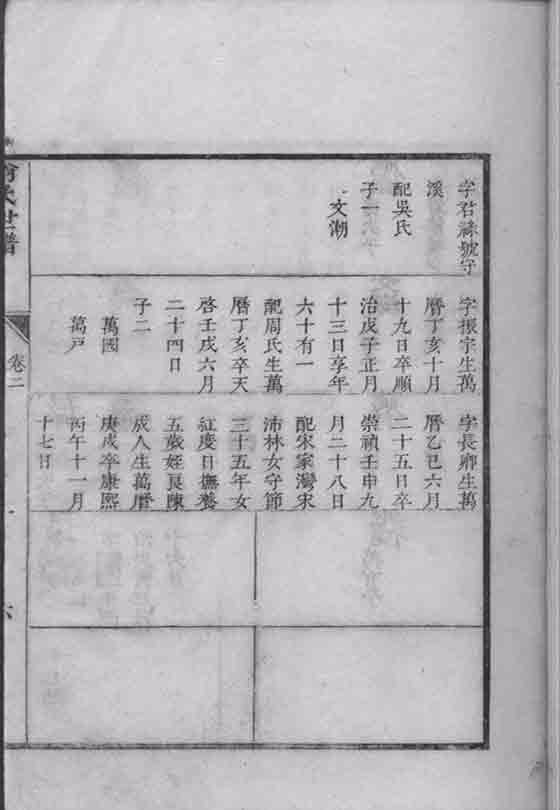 字君祿號守
溪
配吳氏
子一
文潮
字振宇生萬
曆丁亥十月
十九日卒順
治戊子正月
十三日享年
六十有一
配周氏生萬
曆丁亥卒天
啓壬戌六月
二十四日
子二
萬國
萬戸
字長卿生萬
曆乙巳六月
二十五日卒
崇禎壬申九
月二十八日
配宋家灣宋
沛林女守節
三十五年女
紅度日撫養
五歲姪良陳
成人生萬曆
庚戌卒康熙
丙午十一月
十七日
氏世譜
卷二